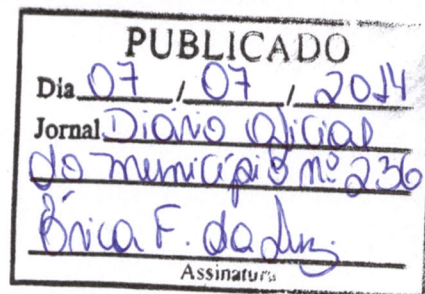 PUBLICADO
Dia 07 / 07 / 2014
Jornal Diário Oficial
do município nº 236
Érica F. da Luz
Assinatura